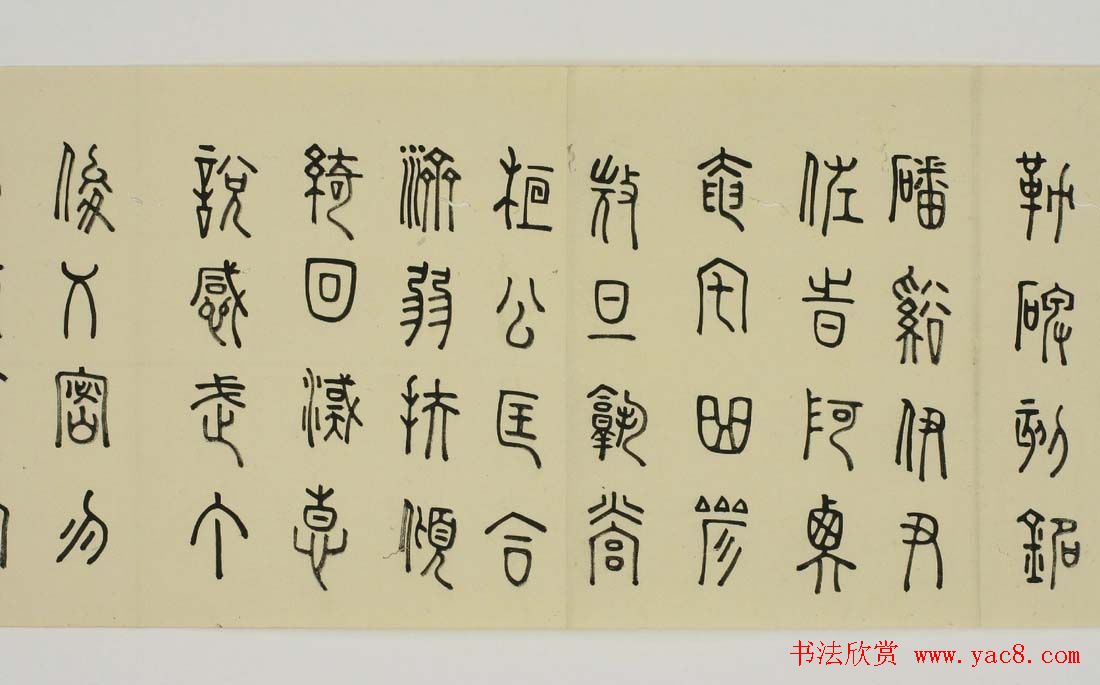 勒碑刻銘
磻谿伊尹
佐旹阿衡
奄宅曲阜
微旦孰營
桓公匡合
濟弱扶傾
綺回漢惠
說感武丁
俊乂密勿
书法欣赏 www.yac8.com